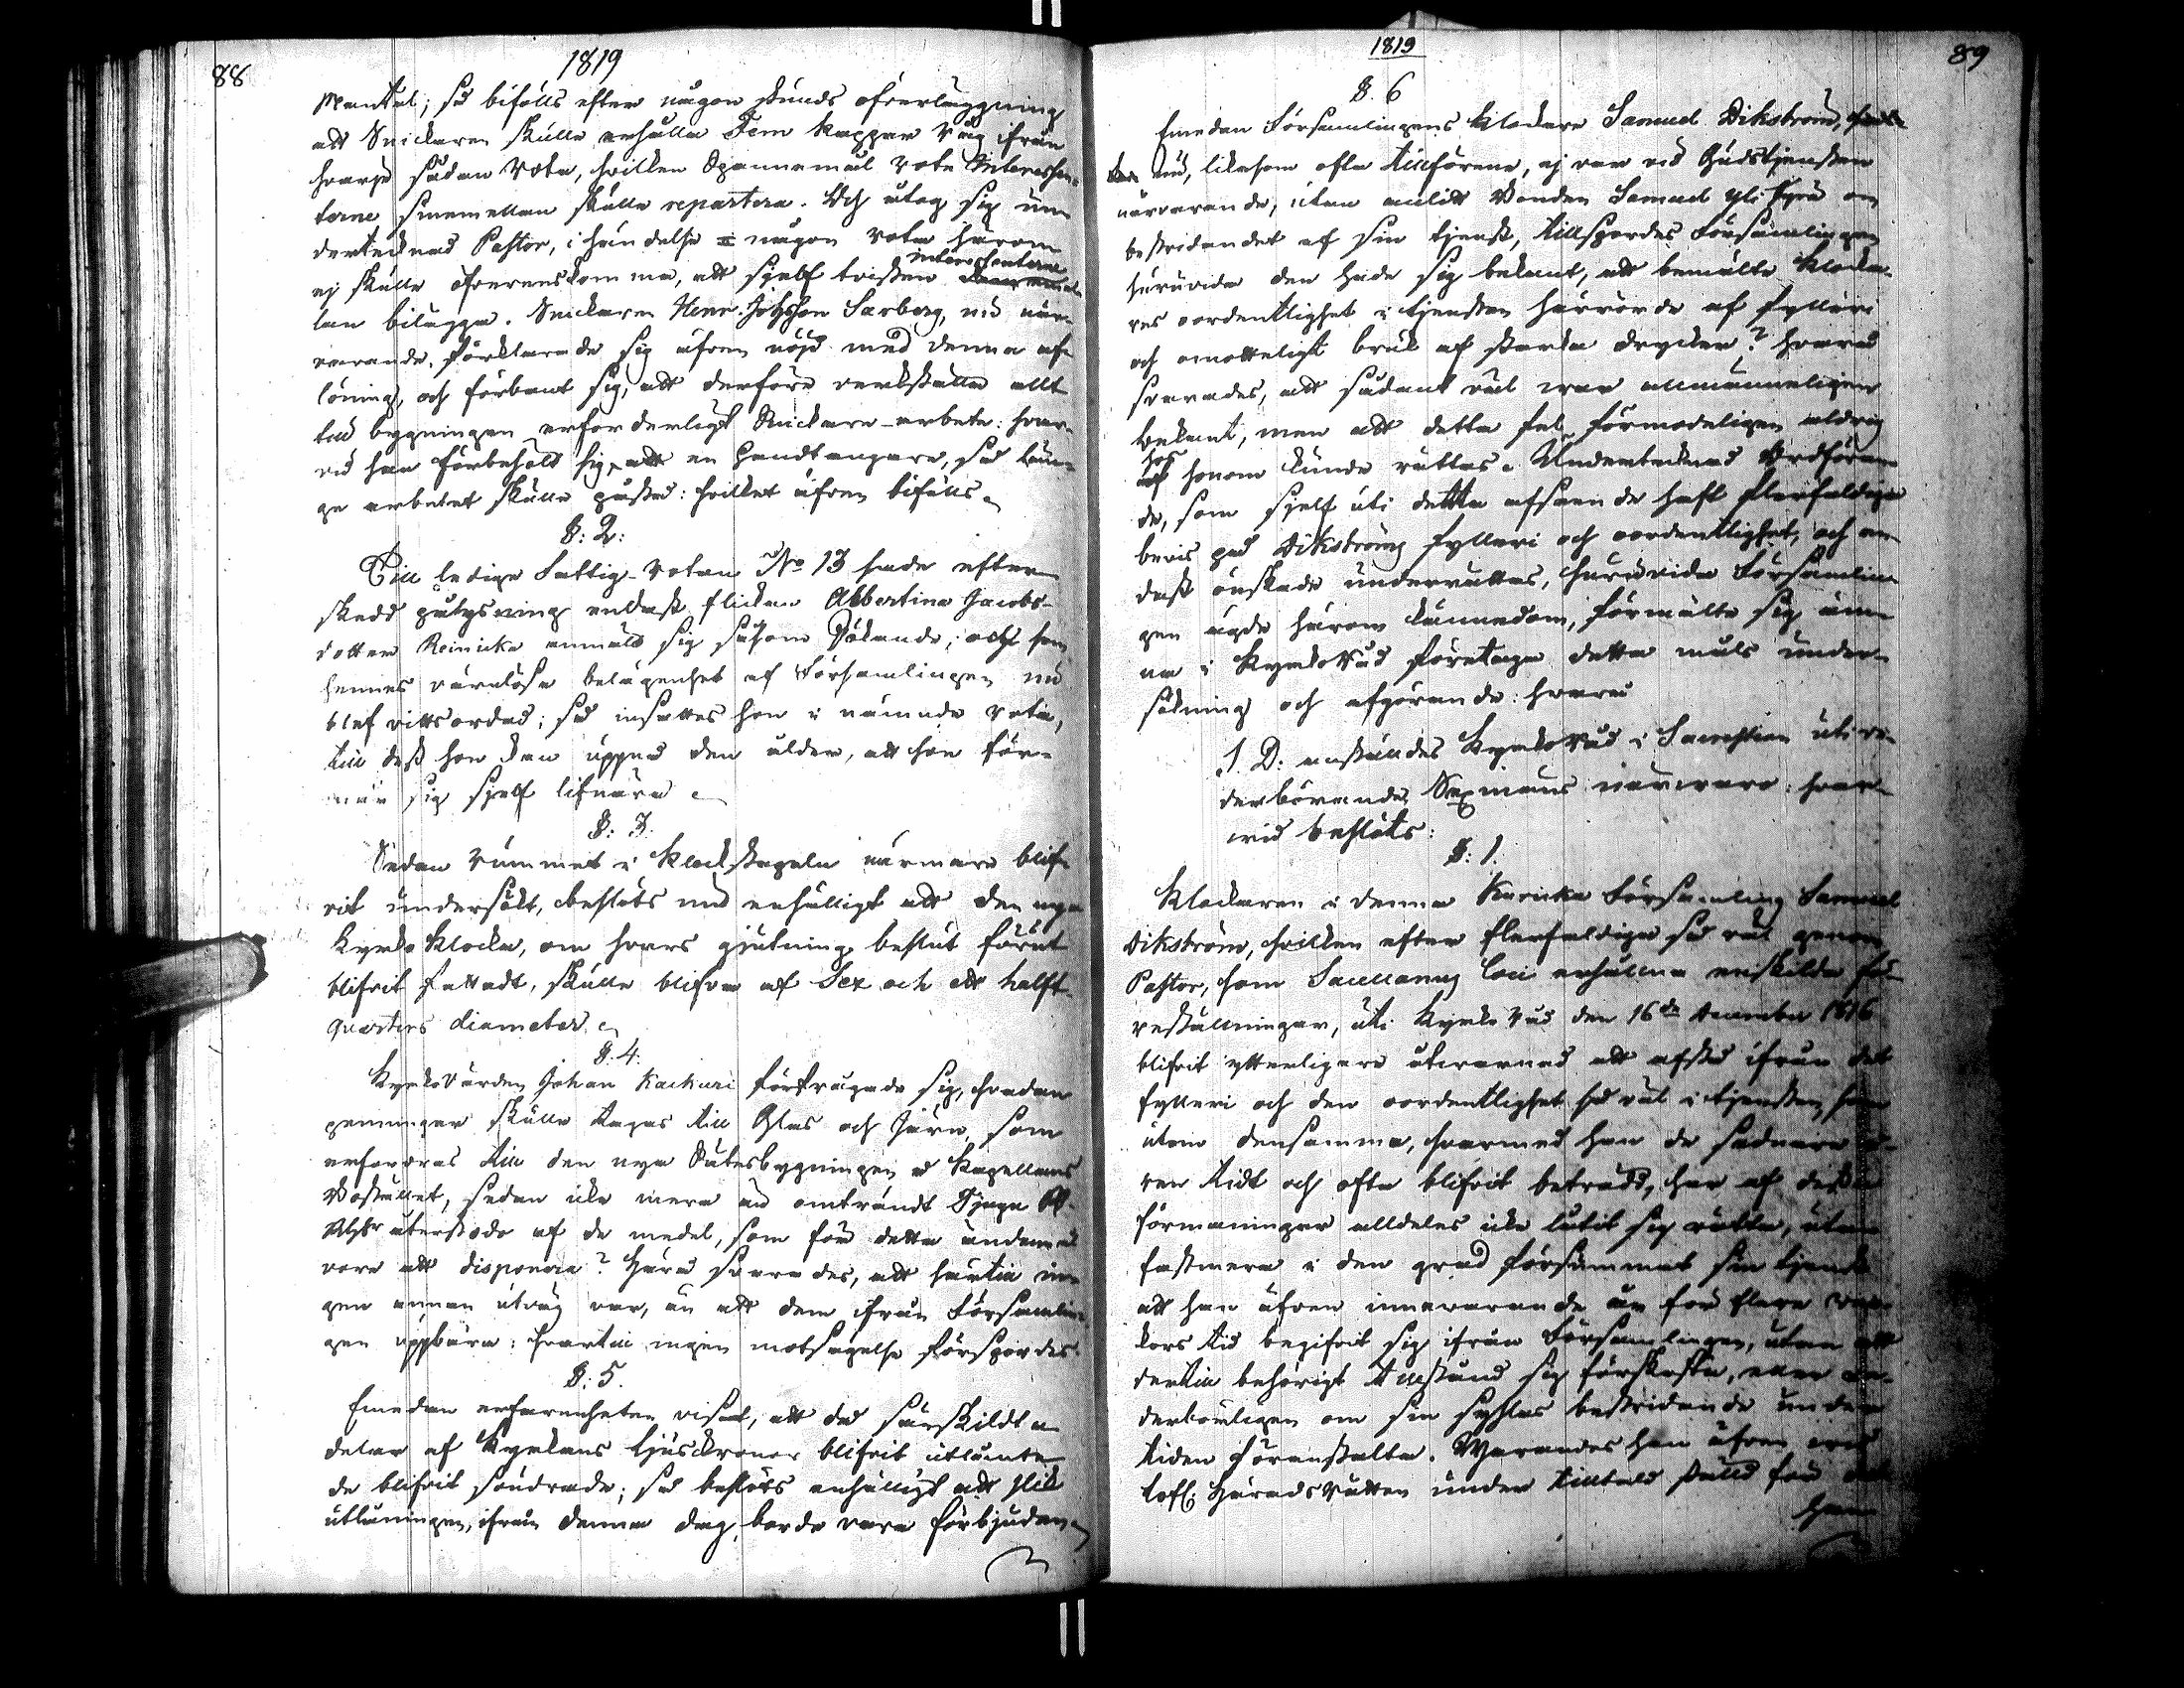 88
1819
Mantal; så bifölls efter någon stunds öfverläggning
att Snickaren skulle erhålla Fem Kappar Råg ifrån
hvarje sådan Rote, hvilken Spannemål Rote Interessen-
terne sinsemellan skulle repartera. Och åtog sig un-
dertecknad Pastor, i händelse någon Rote härom
ej skulle öfverenskomma, att sjelf tvisten Interessenterne emel-
lan bilägga. Snickaren Henr. Johsson Sarberg, nu när-
varande, förklarade sig äfven nöjd med denna af-
löning, och förbant sig, att derföre verkställa allt
till bygningen erforderligt Snickare-arbete: hvar-
vid han förbehöll sig, att en Handtangare, så län-
ge arbetet skulle påstå: hvilket äfven bifölls.
§: 2:
Till lediga Fattig-Rotan No 13 hade efter
skedd pålysning endast flickan Albertina Jacobs-
dotter Reinicka anmält sig såsom Sökande; och som
hennes värnlösa belägenhet af Församlingen nu
blef vittsordad; så insattes hon i nämnde Rote,
till dess hon kan uppnå den ålder, att hon för-
mår sig sjelf lifnära.
§: 3.
Sedan Rummet i Klockstapeln närmare blif-
vit undersökt, beslöts nu enhälligt att den nya
Kyrko Klockan, om hvars gjutning beslut förut
blifvit fattadt, skulle blifva af Sex och ett halft
quarters diameter.
§: 4:
Kyrkovärden Johan Kaikuri förfrågade sig, hvadan
penningar skulle tagas till Glas och Järn, som
erfordras till den nya Stubesbygningen å Kapellans
Bostället, sedan icke mera än omkrindt Tjugu
återstode af de medel, som för detta ändamål
vore att disponera? Härå svarades, att härtill in-
gen annan utväg var, än att dem ifrån Församlin-
gen uppbära: hvartill ingen motsägelse förspordes.
§: 5.
Emedan erfarenheten visat, att då särskildta
delar af Kyrkans Ljuskronor blifvit utlånta
de blifvit söndrade; så beslöts enhälligt att slik
utlåningen, ifrån denna dag, borde vara förbjuden.
1819
89
§. 6
Emedan Församlingens Klockare Samuel Dikström,
nu, likasom ofta tillförene, ej var vid Gudstjensten
närvarande, utan anlitt Bonden Samuel Yli om
bestridandet af sin tjenst, tillspordes Församlingen
huruvida den hade sig bekant, att bemälte Klocka-
res oordentlighet i tjensten härrörde af fylleri
och omåtteligt bruk af starka drycker? Hvarå
svarades, att sådant väl war allmänneligen
bekant, men att detta fel förmodeligen aldrig
hos honom kunde rättas. Undertecknad Ordföran-
de, som sjelf uti detta afseende haft flerfaldiga
bevis på Dikströms fylleri och oordentlighet, och en-
dast önskade underrättas, huruvida Församlin-
gen ägde härom kännedom, förmälte sig äm-
na i KyrkoRåd företaga detta måls under-
sökning och afgörande: hvarå
S. D: anställdes Kyrko Råd i Sacristian uti ve-
derbörande Sexmäns närvaro: hvar-
vid beslöts:
§: 1.
Klockaren i denna Församling Samuel
Dikström, hvilken efter flerfaldiga så väl genom
Pastor, som Sacellanus Loci erhållna enskilda fö-
reställningar, uti Kyrko Råd den 16de December 1816
blifvit ytterligare åtvarnad att afstå ifrån det
fylleri och den oordentlighet så väl i tjensten som
utom densamma, hvarmed han de sednare å-
ren tidt och ofta blifvit beträdd, har af dessa
förmaningar alldeles icke låtit sig rätta, utan
fastmera i den grad försummat sin tjenst
att han äfven innevarande år för flere wec-
kors tid begifvit sig ifrån Församlingen, utan att
dertill behörigt tillstånd sig förskaffa, eller ve-
derbörligen om sin sysslas bestridande under
tiden föranstalta. Warandes han äfven wid
Lofl. HäradsRätten under tilltal ställd för det
han